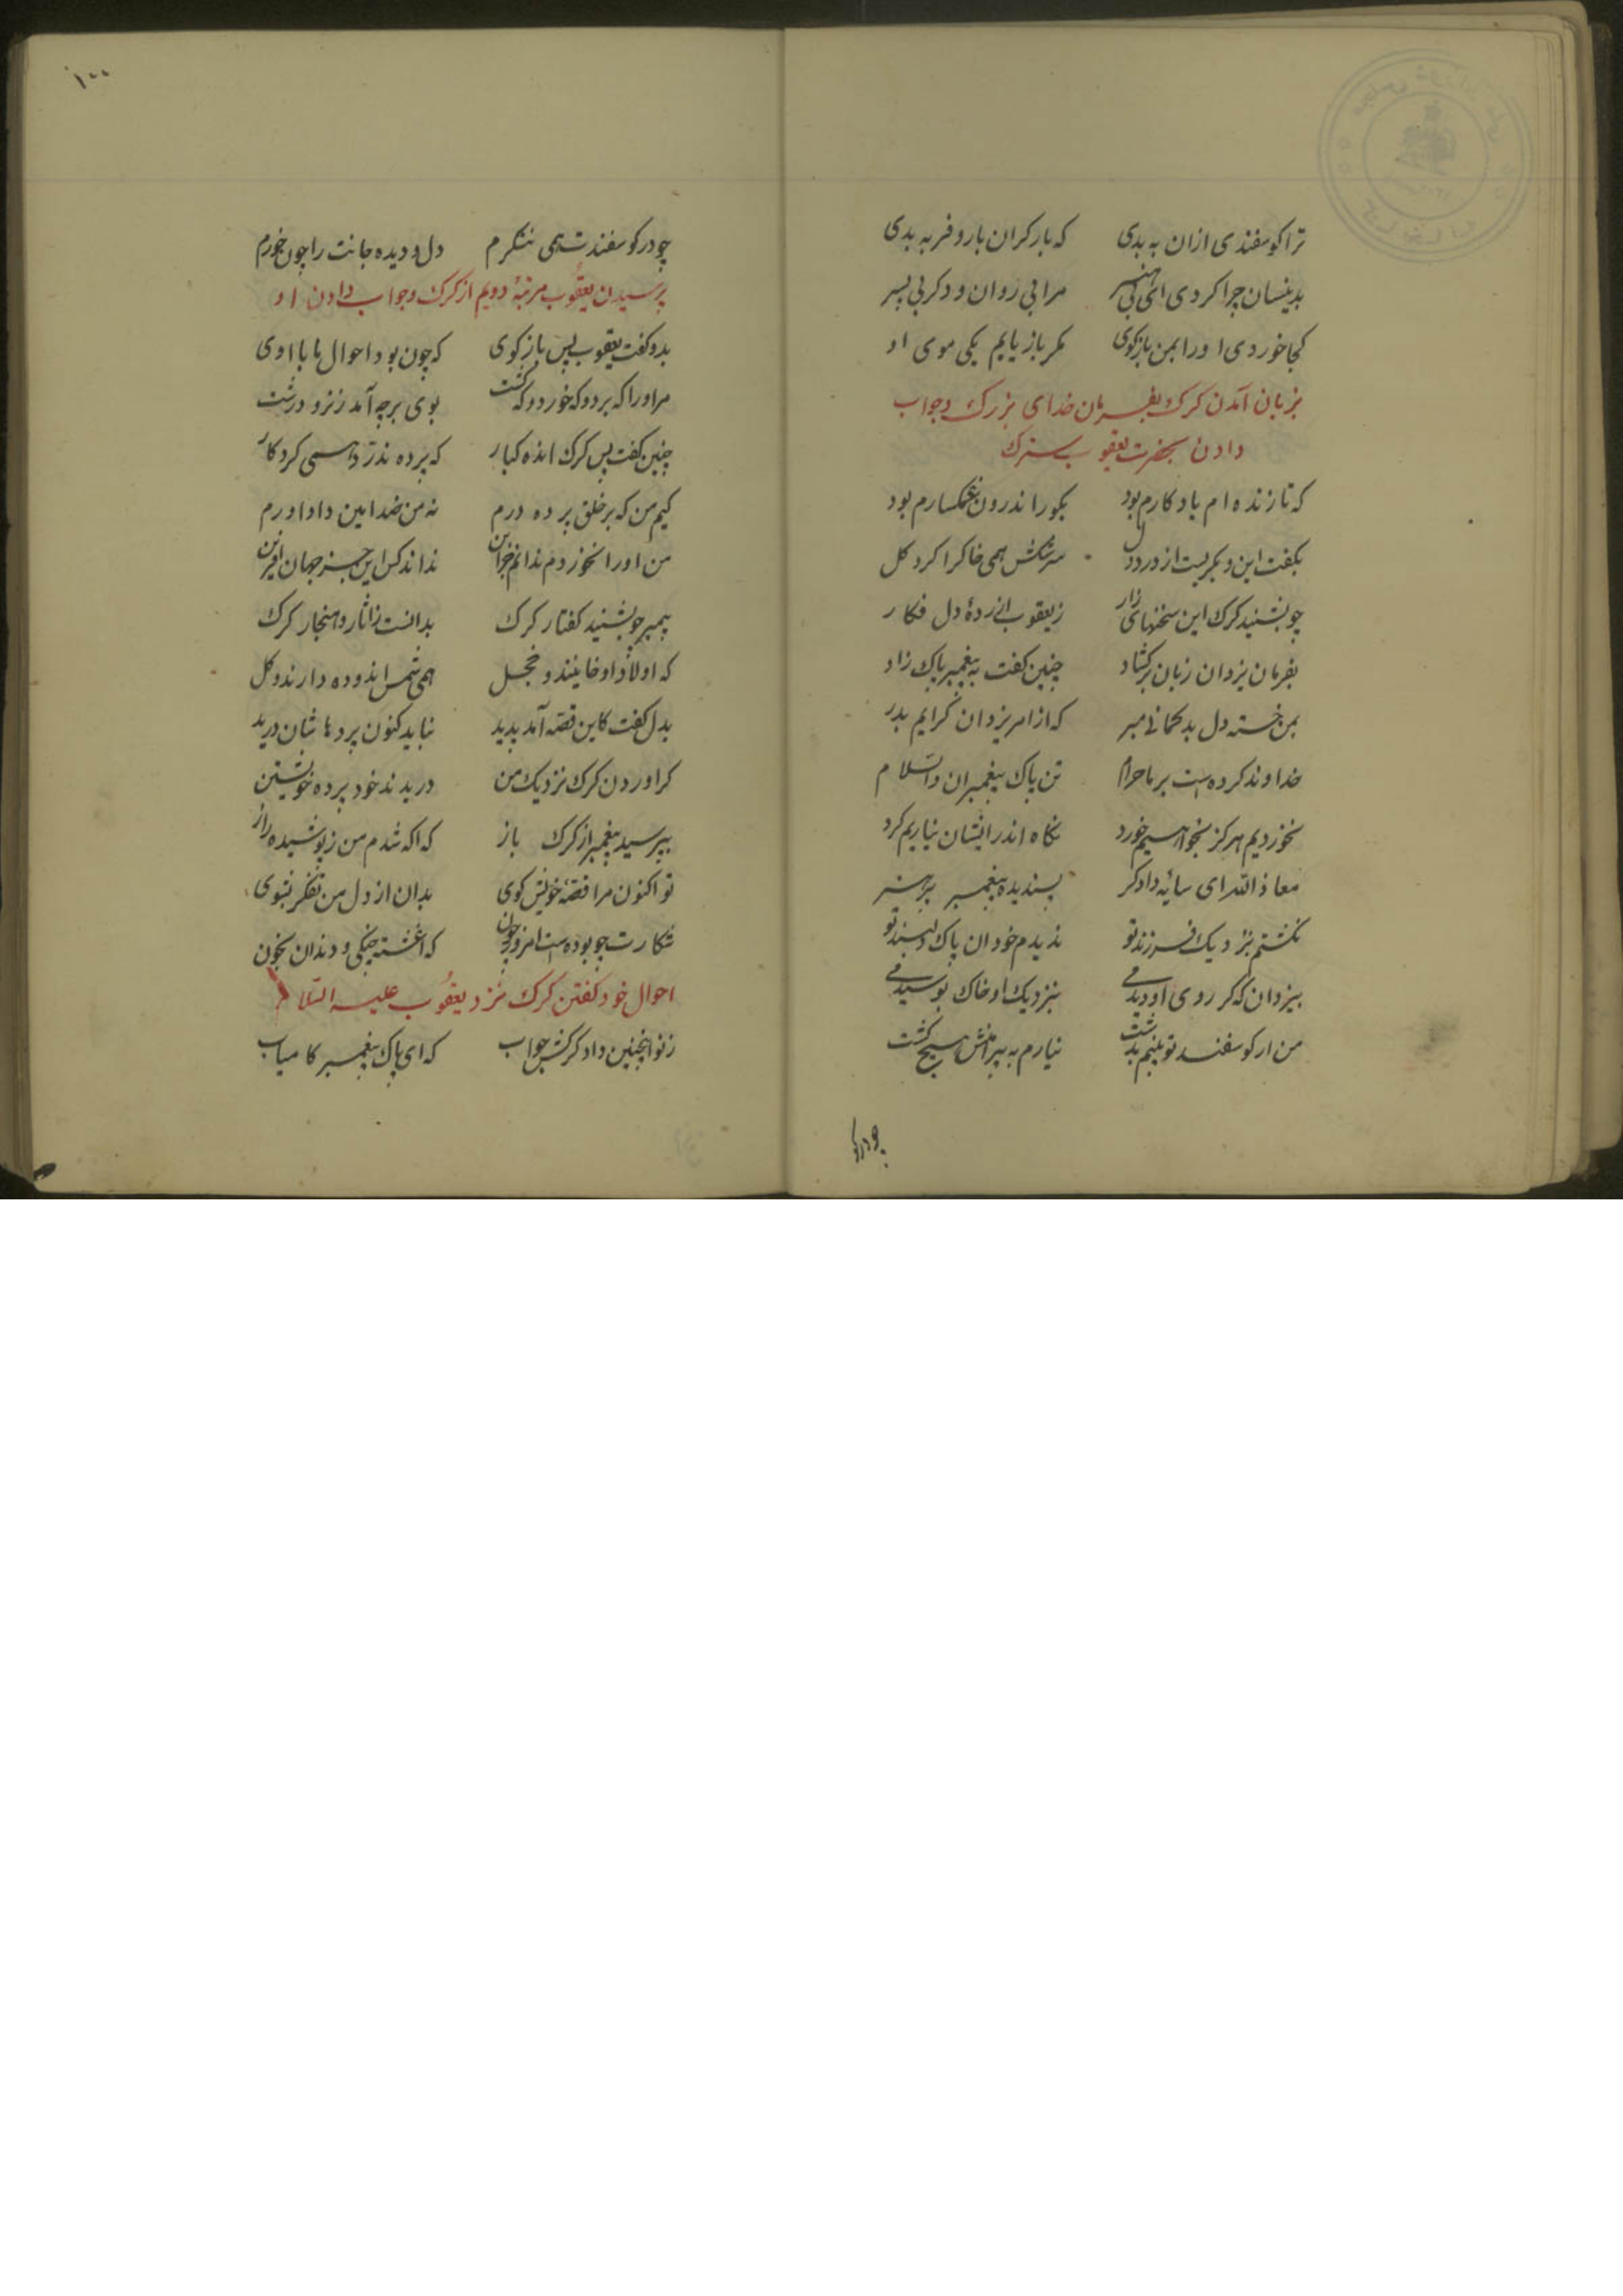 ترا کوسفندی ازان به بدی که بار کران بار و فربه بدی
بدینسان چرا کردی ای بی هنر مرا بی روان و دکر بی پسر
کجا خوردی او را بمن بازکوی مکر باز یابم یکی موی او
بزبان آمدن کرک بفرمان خدای بزرک و جواب
دادن بحضرت یعقوب سترک
که تا زنده ام یادکارم بود بکور اندرون غمکسارم بود
بکفت این و بکریست از درد دل سرشکش همی خاک را کرد کل
چو بشنید کرک این سخنهای زار ز یعقوب آزردهٔ دل فکار
بفرمان یزدان زبان برکشاد چنین کفت به پیغمبر پاک زاد
بمن خسته دل بد کمانی مبر که از امر یزدان کرایم بدر
خداوند کرده است بر ما حرام تن پاک پیغمبران والسلام
نخوردیم هرکز نخواهیم خورد نکاه اندر ایشان نیاریم کرد
معاذ الله ای سایه دادکر پسندیده پیغمبر پرهنر
نکشتم بزدیک فرزند تو ندیدم خود ان پاک دلبند تو
بیزدان که کر روی او دیدمی بنزدیک او خاک بوسیدمی
من ار کوسفند تو بینم بدشت نیارم به پیرامنش هیچ کشت
چو درکو
۱۰۰
چو در کوسفندت همی ننکرم دل و دیده جانت را چون خورم
پرسیدن یعقوب مرتبهٔ دویم از کرک و جواب دادن او
بدو کفت یعقوب پس بازکوی که چون بود احوال ما با اوی
مر او را که برد و که خورد و که کشت بوی بر چه آمد ز نرم و درشت
چنین کفت پس کرک اندهکسار که پرده ندرد همی کردکار
کیم من که بر خلق پرده درم نه من ضد ایین داد اورم
من او را نخوردم ندانم جز این نداند کس این جز جهان افرین
پیمبر چو بشنید کفتار کرک بدانست ز اثار و هنجار کرک
که اولاد او خاینند و خجل همی شمس اندوده دارند و کل
بدل کفت کاین قصه آمد پدید نباید کنون پردهاشان درید
کر اوردن کرک نزدیک من دریدند خود پرده خویشتن
بپرسید پیغمبر از کرک باز که اکه شدم من ز پوشیده راز
تو اکنون مرا قصهٔ خویش کوی بدان از دل من تفکر بشوی
شکارت چو بوده است امروز چون که اغشته چنکی و دندان بخون
احوال خود کفتن کرک نزد یعقوب علیه السلام
ز نو اینچنین داد کرکش جواب که ای پاک پیغمبر کامیاب